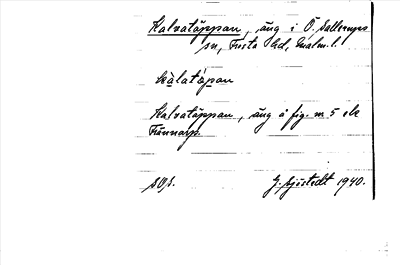 Kalvatäppan, äng i Ö. Sallerups
sn, Frosta hd, Malm. l.
Kalvatäppan, äng å fig. nr 5 sk
Fünnarp.
G. Sjöstedt 1940.